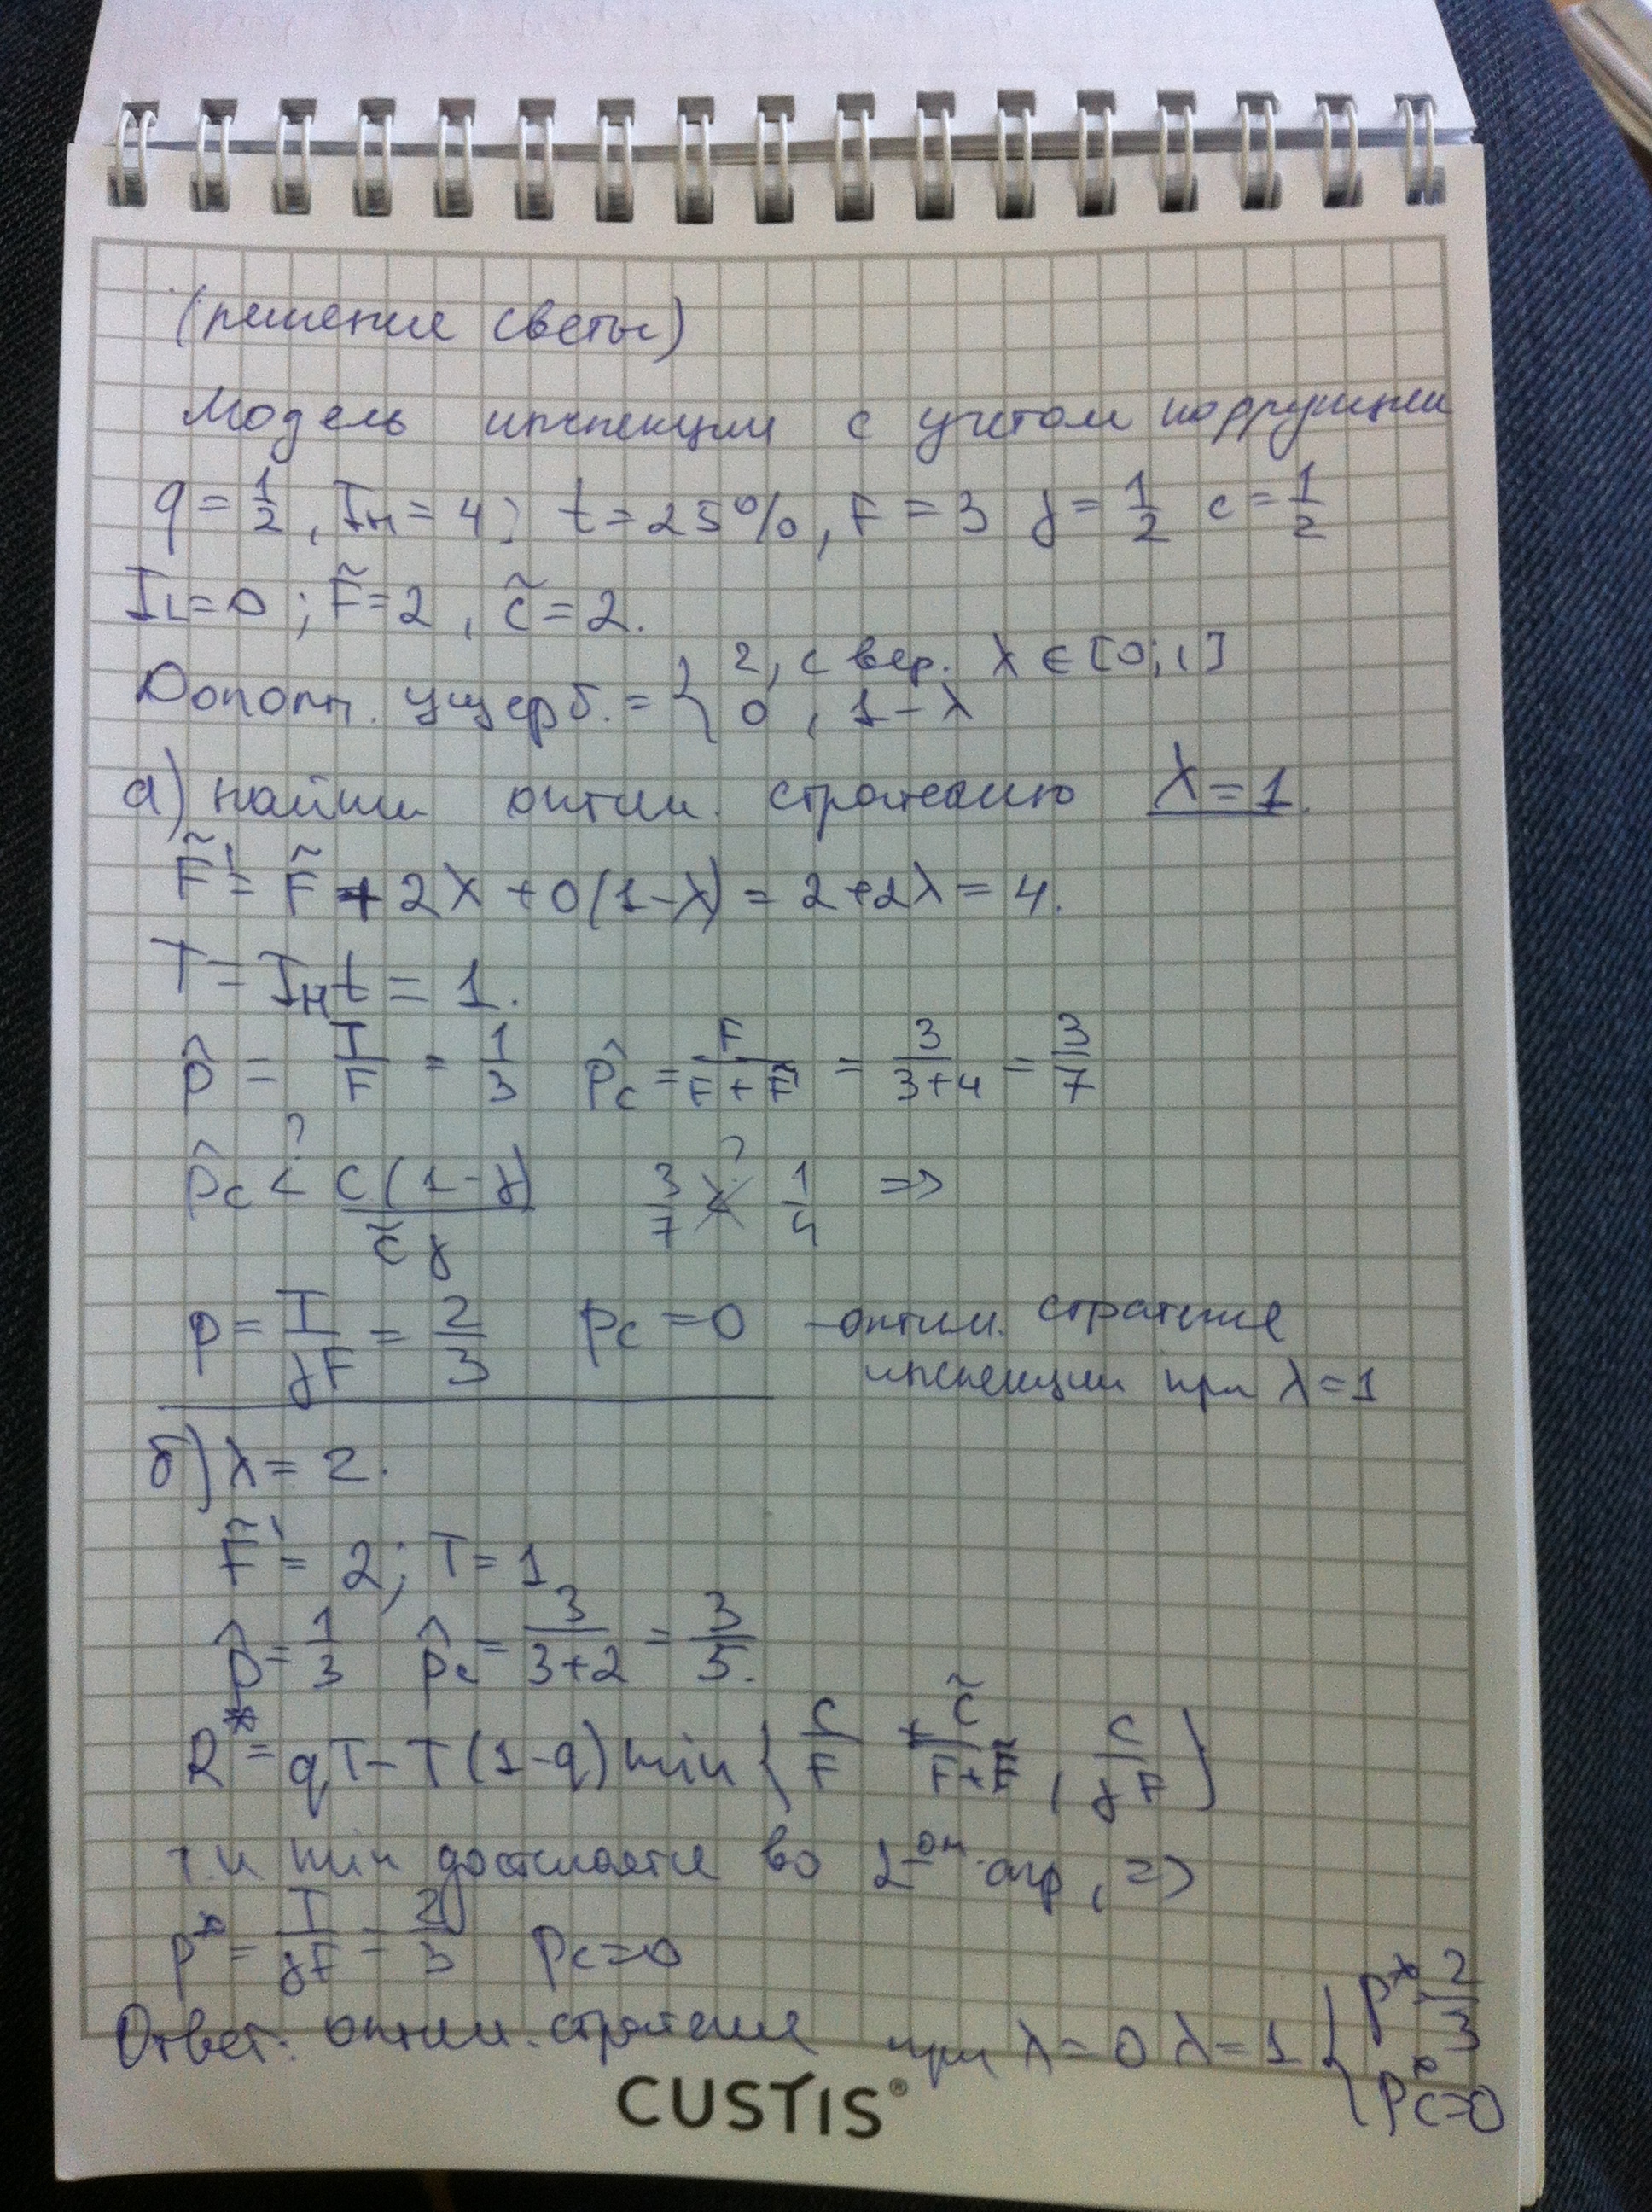 (решение светы)
Модель инспекции с учетом коррупции
q = 1/2, I_H = 4; t = 25%, F = 3 γ = 1/2 c = 1/2
I_L = 0; F̃ = 2, c̃ = 2.
Дополн. ущерб. = { 2, с вер. λ ∈ [0;1]
0, 1-λ
а) найти оптим. стратегию λ = 1.
F̃' = F̃ + 2λ + 0(1-λ) = 2+2λ = 4.
T = I_H t = 1.
p̂ = T/F = 1/3 p̂c = F/(F+F̃') = 3/(3+4) = 3/7
p̂c <? c(1-γ)/(c̃γ) 3/7 ≮? 1/4 =>
p = T/(γF) = 2/3 pc = 0 - оптим. стратегия
инспекции при λ = 1
б) λ = 2.
F̃' = 2; T = 1
p̂ = 1/3 p̂c = 3/(3+2) = 3/5.
R* = qT - T(1-q) min { c/F + c̃/(F+F̃), c/(γF) }
т.к min достигается во 2-ом арг, =>
p* = T/(γF) = 2/3 pc = 0
Ответ: оптим. стратегия при λ = 0 λ = 1 { p* = 2/3
p*c = 0
CUSTIS®